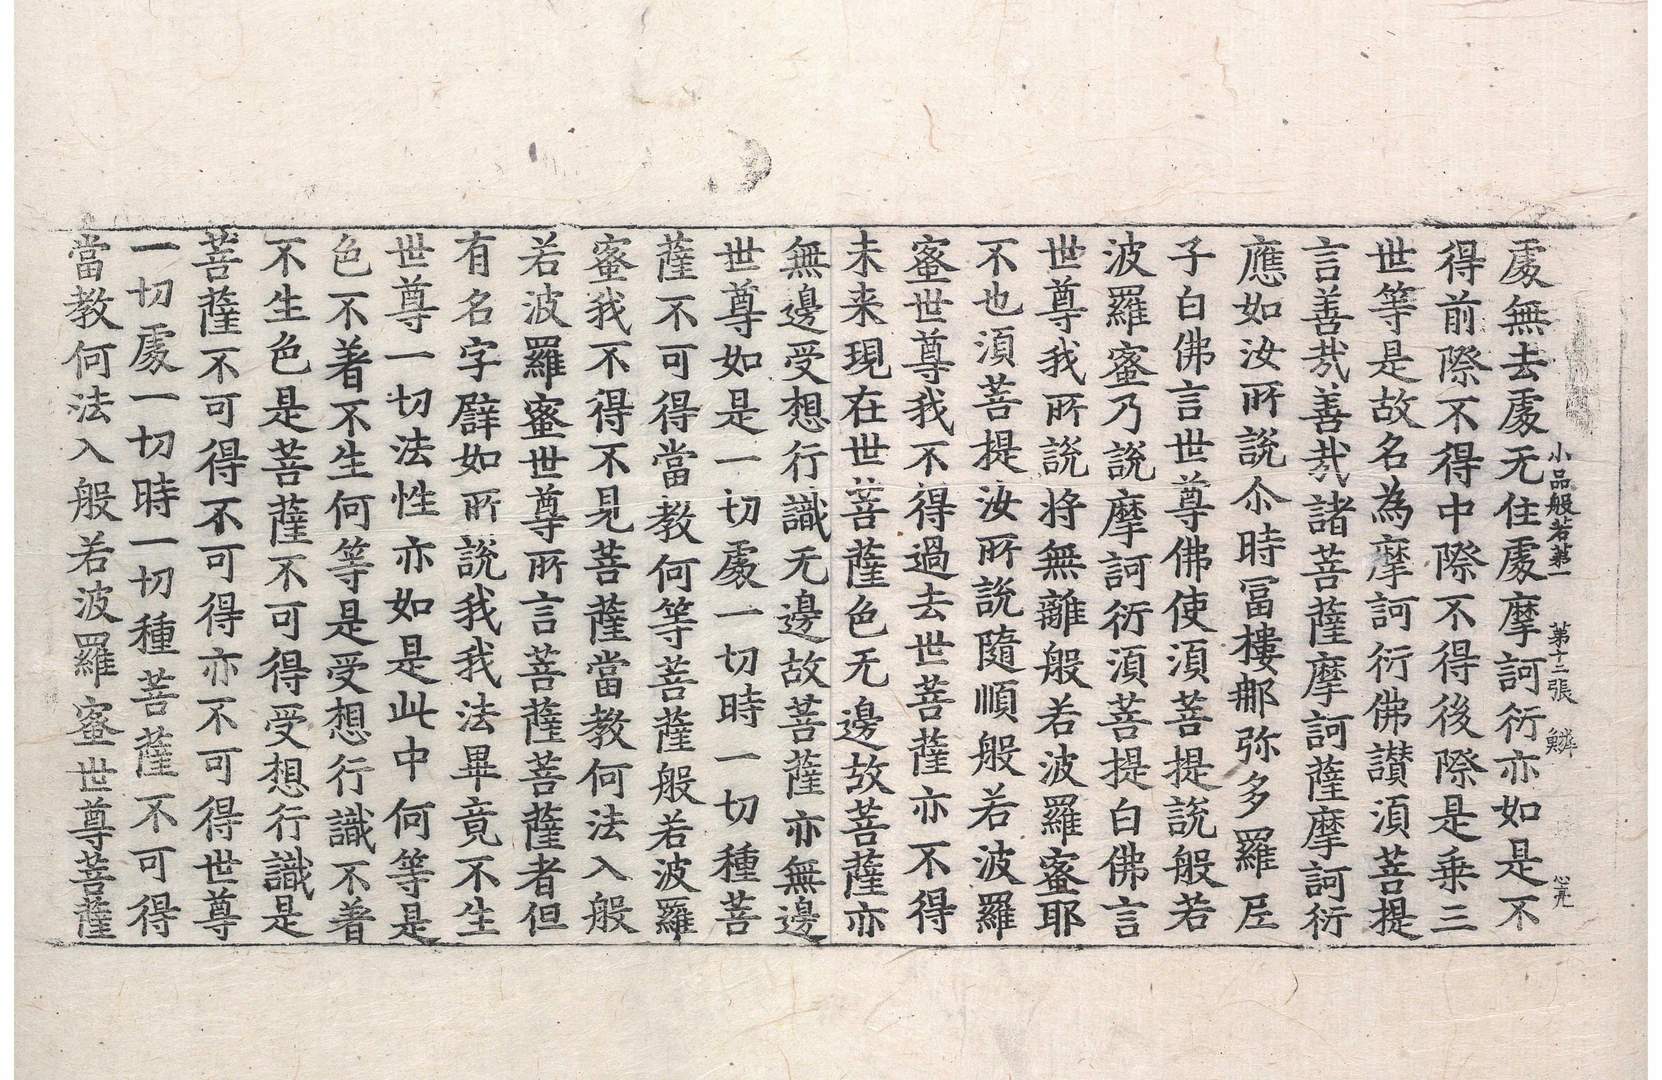 小品般若第一 第十二張 鱗 心光
處無去處无住處摩訶衍亦如是不
得前際不得中際不得後際是乗三
世等是故名為摩訶衍佛讃湏菩提
言善㢤善㢤諸菩薩摩訶薩摩訶衍
應如汝所說尒時冨樓那弥多羅𡰱
子白佛言世尊佛使湏菩提說般若
波羅蜜乃說摩訶衍湏菩提白佛言
世尊我所說将無離般若波羅蜜耶
不也湏菩提汝所說隨順般若波羅
蜜世尊我不得過去世菩薩亦不得
未来現在世菩薩色无邊故菩薩亦
無邊受想行識无邊故菩薩亦無邊
世尊如是一切處一切時一切種菩
薩不可得當教何等菩薩般若波羅
蜜我不得不見菩薩當教何法入般
若波羅蜜世尊所言菩薩菩薩者但
有名字辟如所說我我法畢竟不生
世尊一切法性亦如是此中何等是
色不著不生何等是受想行識不著
不生色是菩薩不可得受想行識是
菩薩不可得不可得亦不可得世尊
一切處一切時一切種菩薩不可得
當教何法入般若波羅蜜世尊菩薩